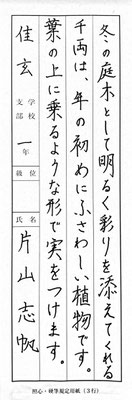 冬の庭木として明るく彩りを添えてくれる
千両は、年の初めにふさわしい植物です。
葉の上に乗るような形で実をつけます。
佳玄
学校
支部
一年
級位
氏名
片山志帆
照心・硬筆規定用紙(3行)